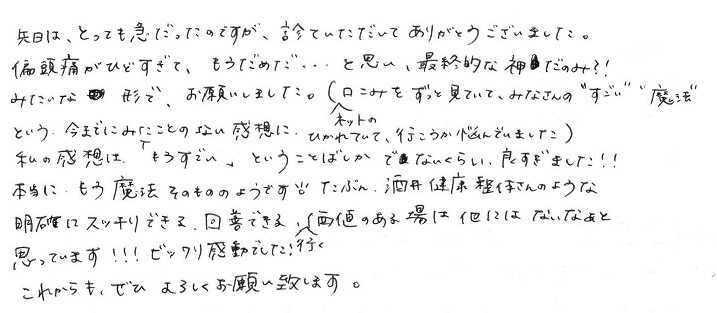 先日は、とっても急だったのですが、診ていただいてありがとうございました。
偏頭痛がひどすぎて、もうだめだ...と思い、最終的な神だのみ?!
みたいな形で、お願いしました。(口こみをずっと見ていて、みなさんの"すごい""魔法"
ネットの
という、今までにみたことのない感想に、ひかれていて、行こうか悩んでいました)
私の感想は、「もうすごい」ということばしかでないくらい、良すぎました!!
本当に、もう魔法そのもののようです!! たぶん、酒井健康整体さんのような
明確にスッキリできる、回善できる、価値のある場は他にはないなぁと
行く
思っています!!!ビックリ感動でした!
これからも、ぜひよろしくお願い致します。